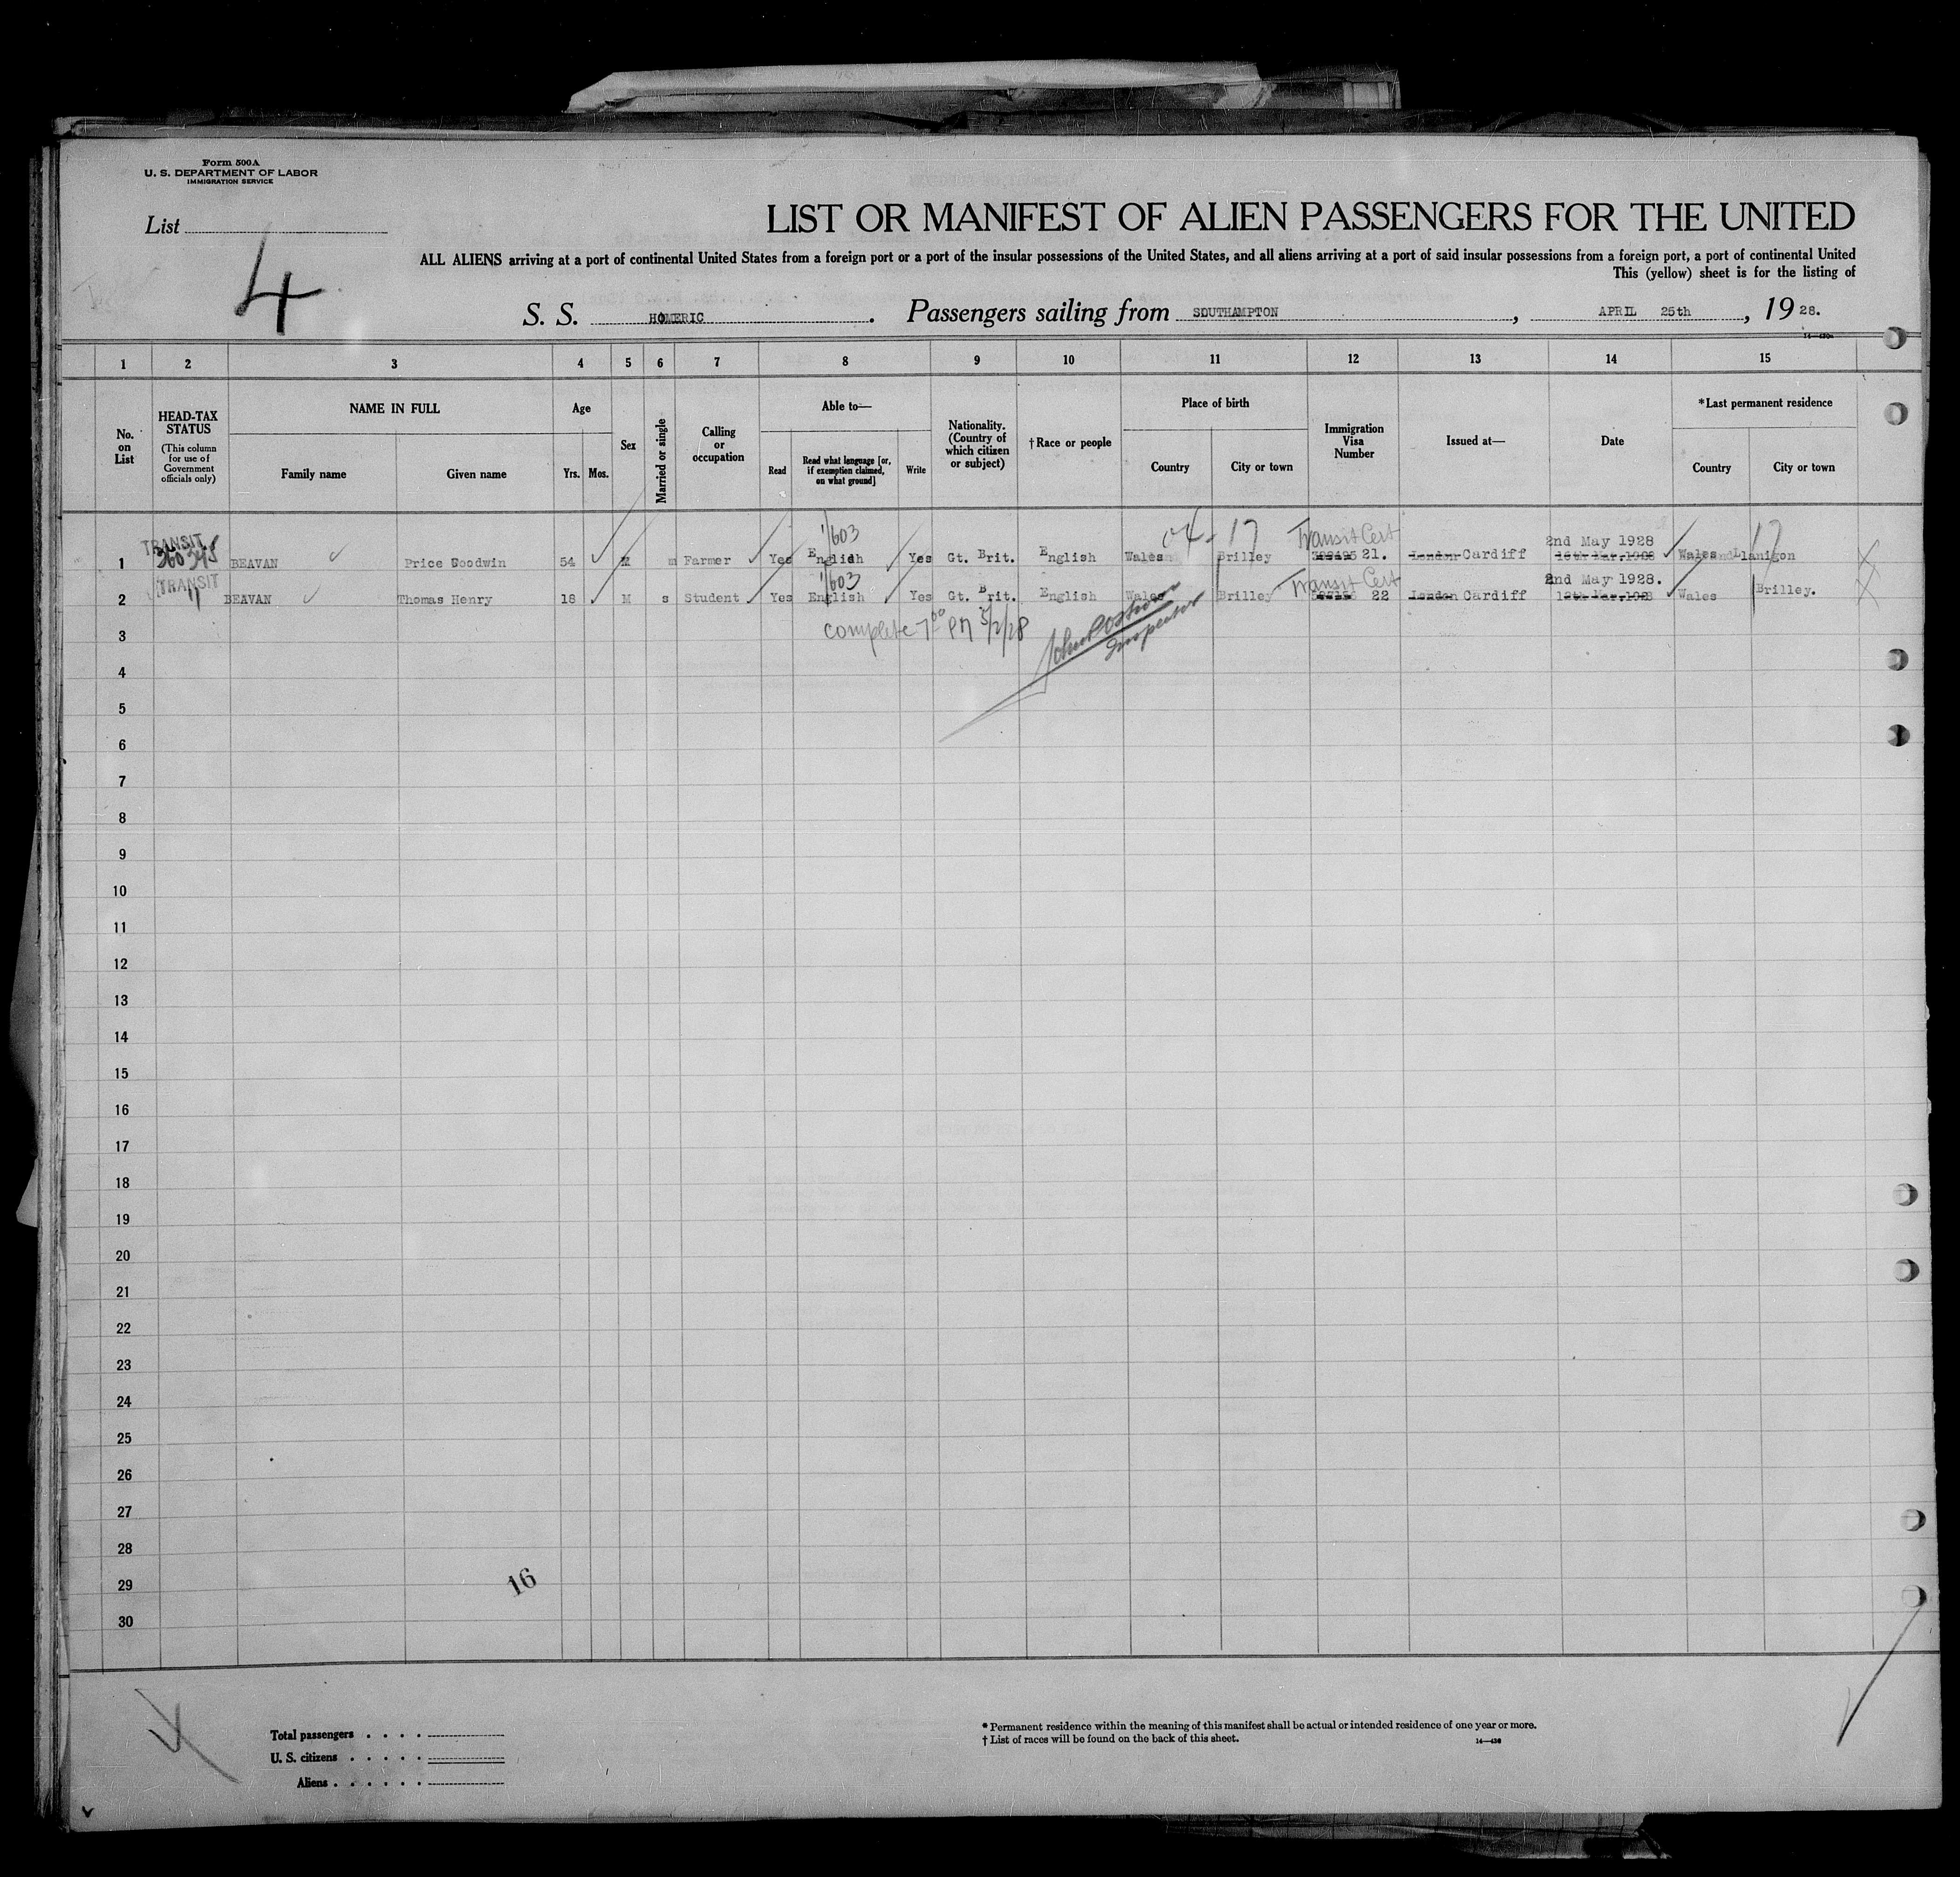 Form 500A
U. S. DEPARTMENT OF LABOR
IMMIGRATION SERVICE
List
4
LIST OR MANIFEST OF ALIEN PASSENGERS FOR THE UNITED
ALL ALIENS arriving at a port of continental United States from a foreign port or a port of the insular possessions of the United States, and all aliens arriving at a port of said insular possessions from a foreign port, a port of continental United
This (yellow) sheet is for the listing of
S. S. HOMERIC. Passengers sailing from SOUTHAMPTON, APRIL 25th, 1928.
1 2 3 4 5 6 7 8 9 10 11 12 13 14 15
No. on List
HEAD-TAX STATUS
(This column for use of Government officials only)
NAME IN FULL
Family name Given name
Age
Yrs. Mos.
Sex
Married or single
Calling or occupation
Able to—
Read
Read what language [or, if exemption claimed, on what ground]
Write
Nationality. (Country of which citizen or subject)
†Race or people
Place of birth
Country City or town
Immigration Visa Number
Issued at—
Date
*Last permanent residence
Country City or town
1/603 17 Transit Cert 2nd May 1928 17
TRANSIT
1 BEAVAN Price Goodwin 54 M m Farmer Yes English Yes Gt. Brit. English Wales Brilley 21. London Cardiff 16th Mar. 1928 Wales Llanigon
1/603 Transit Cert 2nd May 1928.
TRANSIT
2 BEAVAN Thomas Henry 18 M s Student Yes English Yes Gt. Brit. English Wales Brilley 22 London Cardiff Mar. 1928 Wales Brilley.
complete 7 00 PM 5/2/28
John
Inspector
3
4
5
6
7
8
9
10
11
12
13
14
15
16
17
18
19
20
21
22
23
24
25
26
27
28
29
30
16
Total passengers . . . .
U. S. citizens . . . . .
Aliens . . . . . .
* Permanent residence within the meaning of this manifest shall be actual or intended residence of one year or more.
† List of races will be found on the back of this sheet.